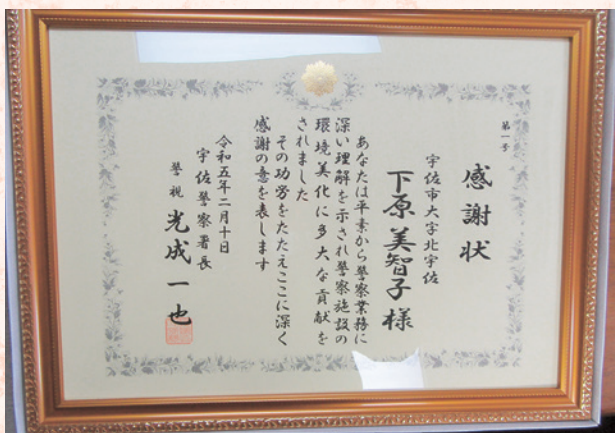 第一号
感謝状
宇佐市大字北宇佐
下原美智子様
あなたは平素から警察業務に
深い理解を示され警察施設の
環境美化に多大な貢献を
されました
その功労をたたえここに深く
感謝の意を表します
令和五年二月十日
宇佐警察署長
警視 光成一也